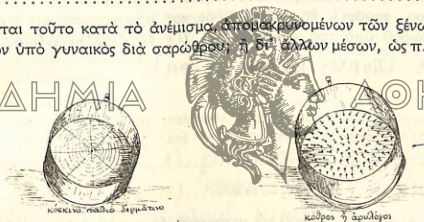 ται τοῦτο κατὰ τὸ ἀνέμισμα, ἀπομακρυνομένων τῶν ξένω
ν ὑπὸ γυναικὸς διὰ σαρώθρου; ἢ δι' ἄλλων μέσων, ὡς π.
ΔΗΜΙΑ ΑΘΗ
κοσκινο παλιο δερμάτινο
κόθρος ἢ ἀρυλόγος